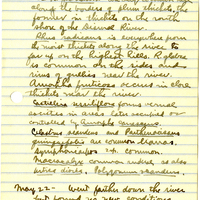 along the borders of plum thickets, the
former in thickets on the north
shore of the Dismal River.
Rhus radicans is everywhere from
the moist thickets along the river to
far up on the highest hills. R. glabra
is common on the sides and
rims of gullies near the river.
Amorpha fruticosa occurs in close
thickets near the river.
forms vernal
societies in areas later occupied or
controlled by Amorpha canescens.
Celastrus scandens and Parthenocissus
quinquefolia are common lianas.
Symphoricarpos common.
common indeed, as also
Polygonum scandens.
May 22 - Went farther down the river
but found no new conditions